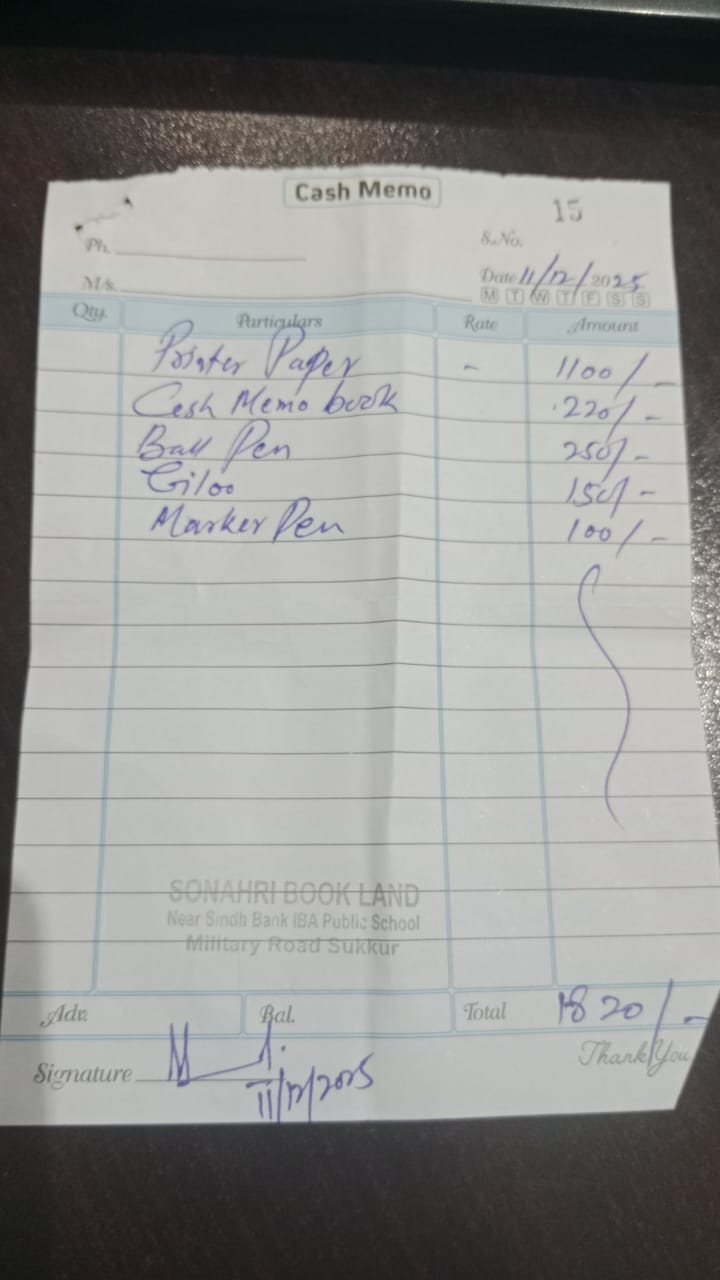 Cash Memo
15
Ph.
S.No.
M/s.
Date 11/12/2025
M T W T F S S
Qty. Particulars Rate Amount
Printer Paper - 1100/-
Cash Memo book 220/-
Ball Pen 250/-
Giloo 150/-
Marker Pen 100/-
SONAHRI BOOK LAND
Near Sindh Bank IBA Public School
Military Road Sukkur
Adv. Bal. Total 1820/-
Thank You
Signature
11/12/2025